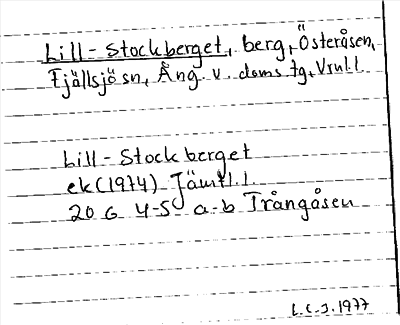 Lill-Stockberget, berg, Österåsen,
Fjällsjö sn, Ång. v. doms tg, Vrnl.l.
Lill-Stockberget
ek(1974) Jämtl.l.
20 G 4-5 a-b Trångåsen
L.C.J. 1977